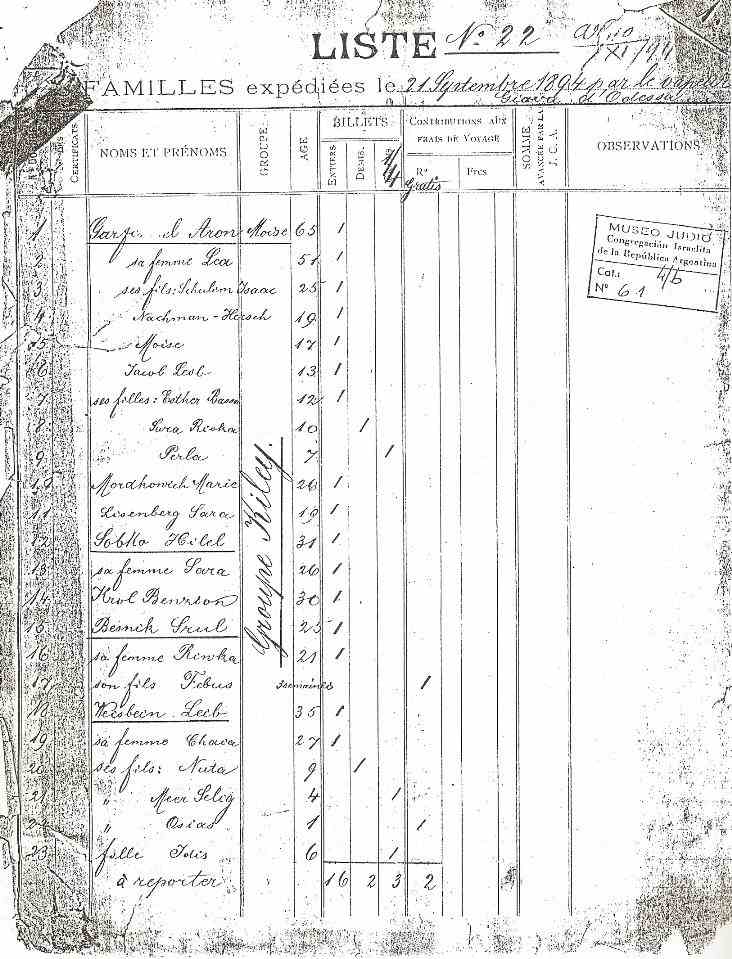 1.
LISTE N° 22
FAMILLES expédiées le 21 Septembre 1894 par le vapeur
d'Odessa
Nos DES CERTIFICATS
NOMS ET PRÉNOMS
GROUPE.
AGE
BILLETS
ENTIERS
DEMIS.
1/4
CONTRIBUTIONS AUX FRAIS DE VOYAGE
Rs
Gratis
Frcs
SOMME AVANCÉE PAR LA J. C. A.
OBSERVATIONS
MUSEO JUDIO
Congregación Israelita
de la República Argentina
Cat.: 4/b
N° 61
Groupe Kiley.
1 Aron Moise 65 1
2 sa femme Lea 51 1
3 ses fils: Schulim Isaac 25 1
4 Nachman-Hersch 19 1
5 Moise 17 1
6 Jacob Leib 13 1
7 ses filles: Esther 12 1
8 Sura Riwka 10 1
9 Perla 7 1
10 Mordkowich Marie 26 1
11 Lisenberg Sara 19 1
12 Sobko Hilel 31 1
13 sa femme Sara 26 1
14 Krol 30 1
15 Besnik Srul 25 1
16 sa femme Riwka 21 1
17 son fils Febus 3 semaines 1
18 Weisbein Leib 35 1
19 sa femme Chaia 27 1
20 ses fils: Nuta 9 1
21 " Meer Selig 4 1
22 " Osias 1 1
23 fille Idis 6 1
à reporter 16 2 3 2